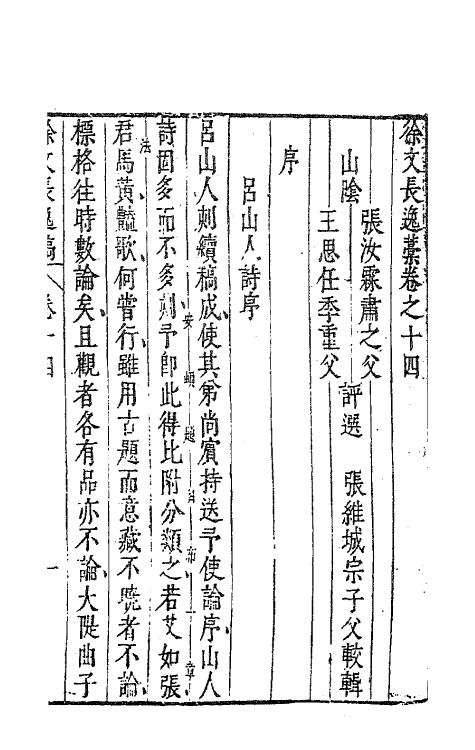 徐文長逸藁卷之十四
張汝霖肅之父
山陰　評選　張維城宗子父較輯
王思任季重父
序
呂山人詩序
呂山人刻續稿成使其弟尚賓持送予使論序山人
詩固多而不多刻予卽此得比附分類之若艾如張
君馬黃豔歌何嘗行雖用古題而意藏不曉者不論
標格往時數論矣且觀者各有品亦不論大隄曲子
徐文長逸稿　卷十四　一